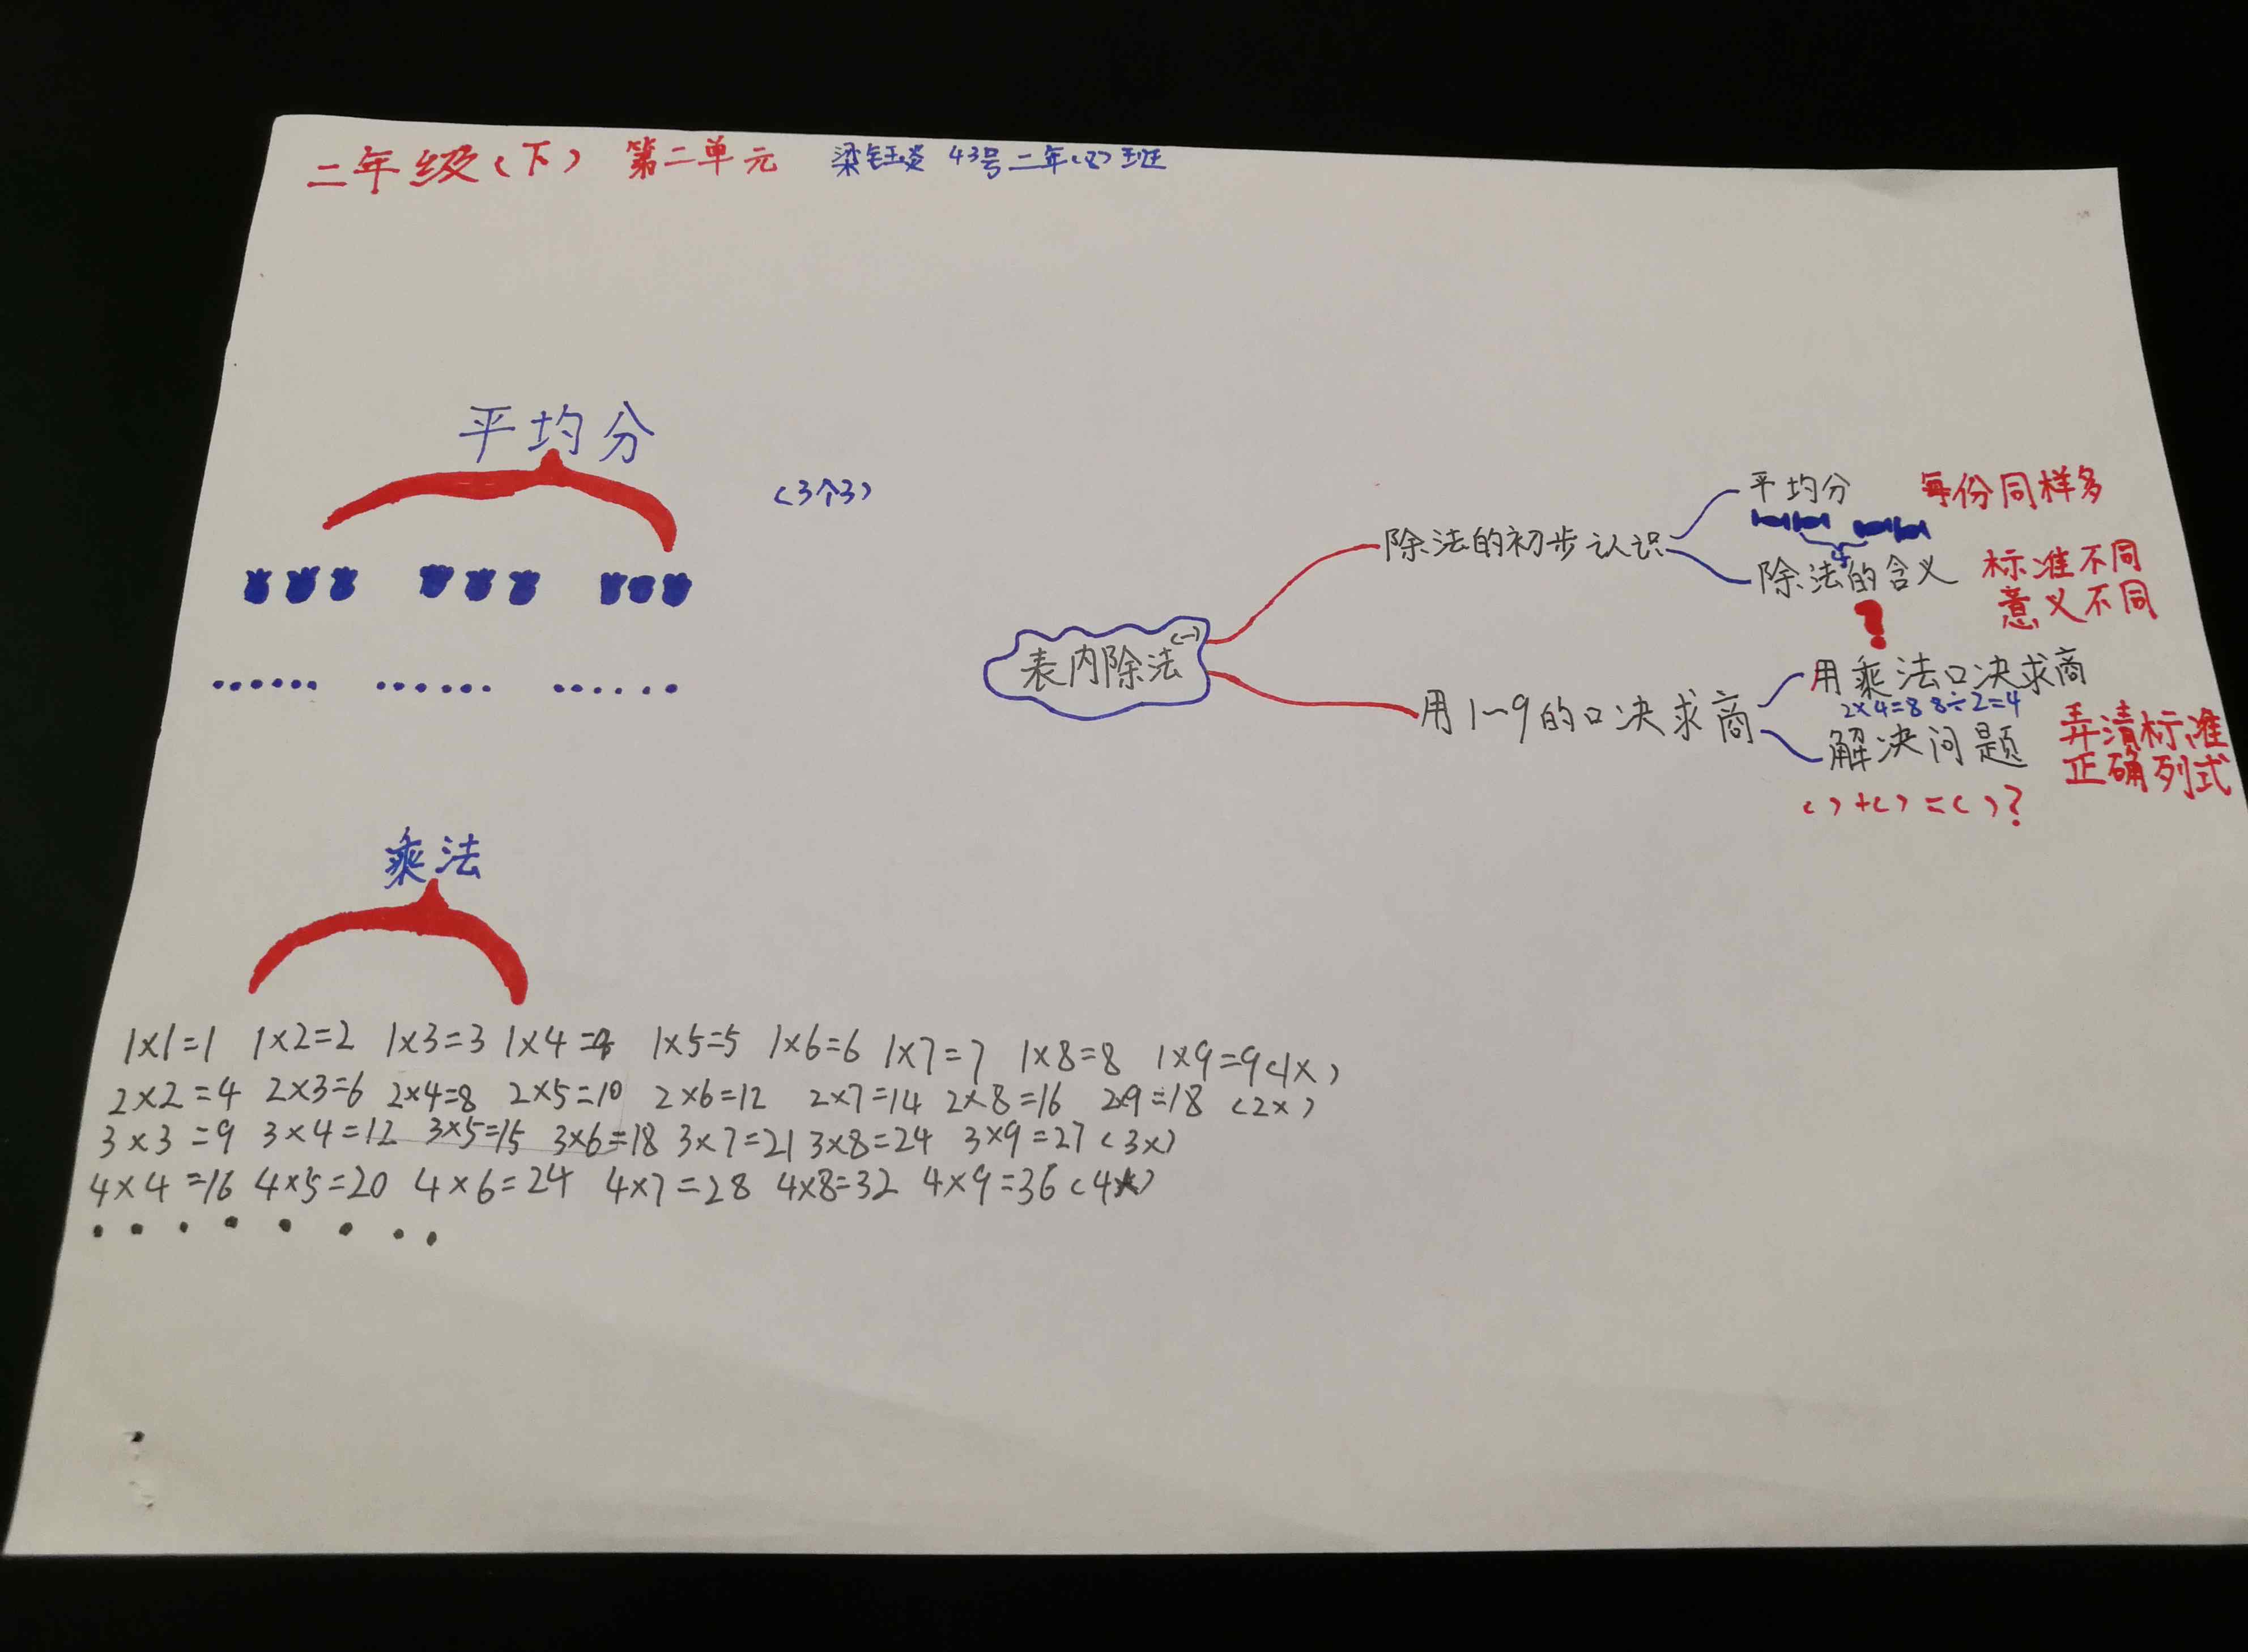 二年级(下) 第二单元 梁钰炎 43号 二年(8)班
平均分
(3个3)
......　.......　......
乘法
1×1=1 1×2=2 1×3=3 1×4=4 1×5=5 1×6=6 1×7=7 1×8=8 1×9=9(1×)
2×2=4 2×3=6 2×4=8 2×5=10 2×6=12 2×7=14 2×8=16 2×9=18 (2×)
3×3=9 3×4=12 3×5=15 3×6=18 3×7=21 3×8=24 3×9=27(3×)
4×4=16 4×5=20 4×6=24 4×7=28 4×8=32 4×9=36(4×)
........
表内除法(一)
除法的初步认识
平均分 每份同样多
4
除法的含义 标准不同
意义不同
?
用1~9的口决求商
用乘法口决求商
2×4=8 8÷2=4
解决问题 弄清标准
正确列式
( )+( )=( )?